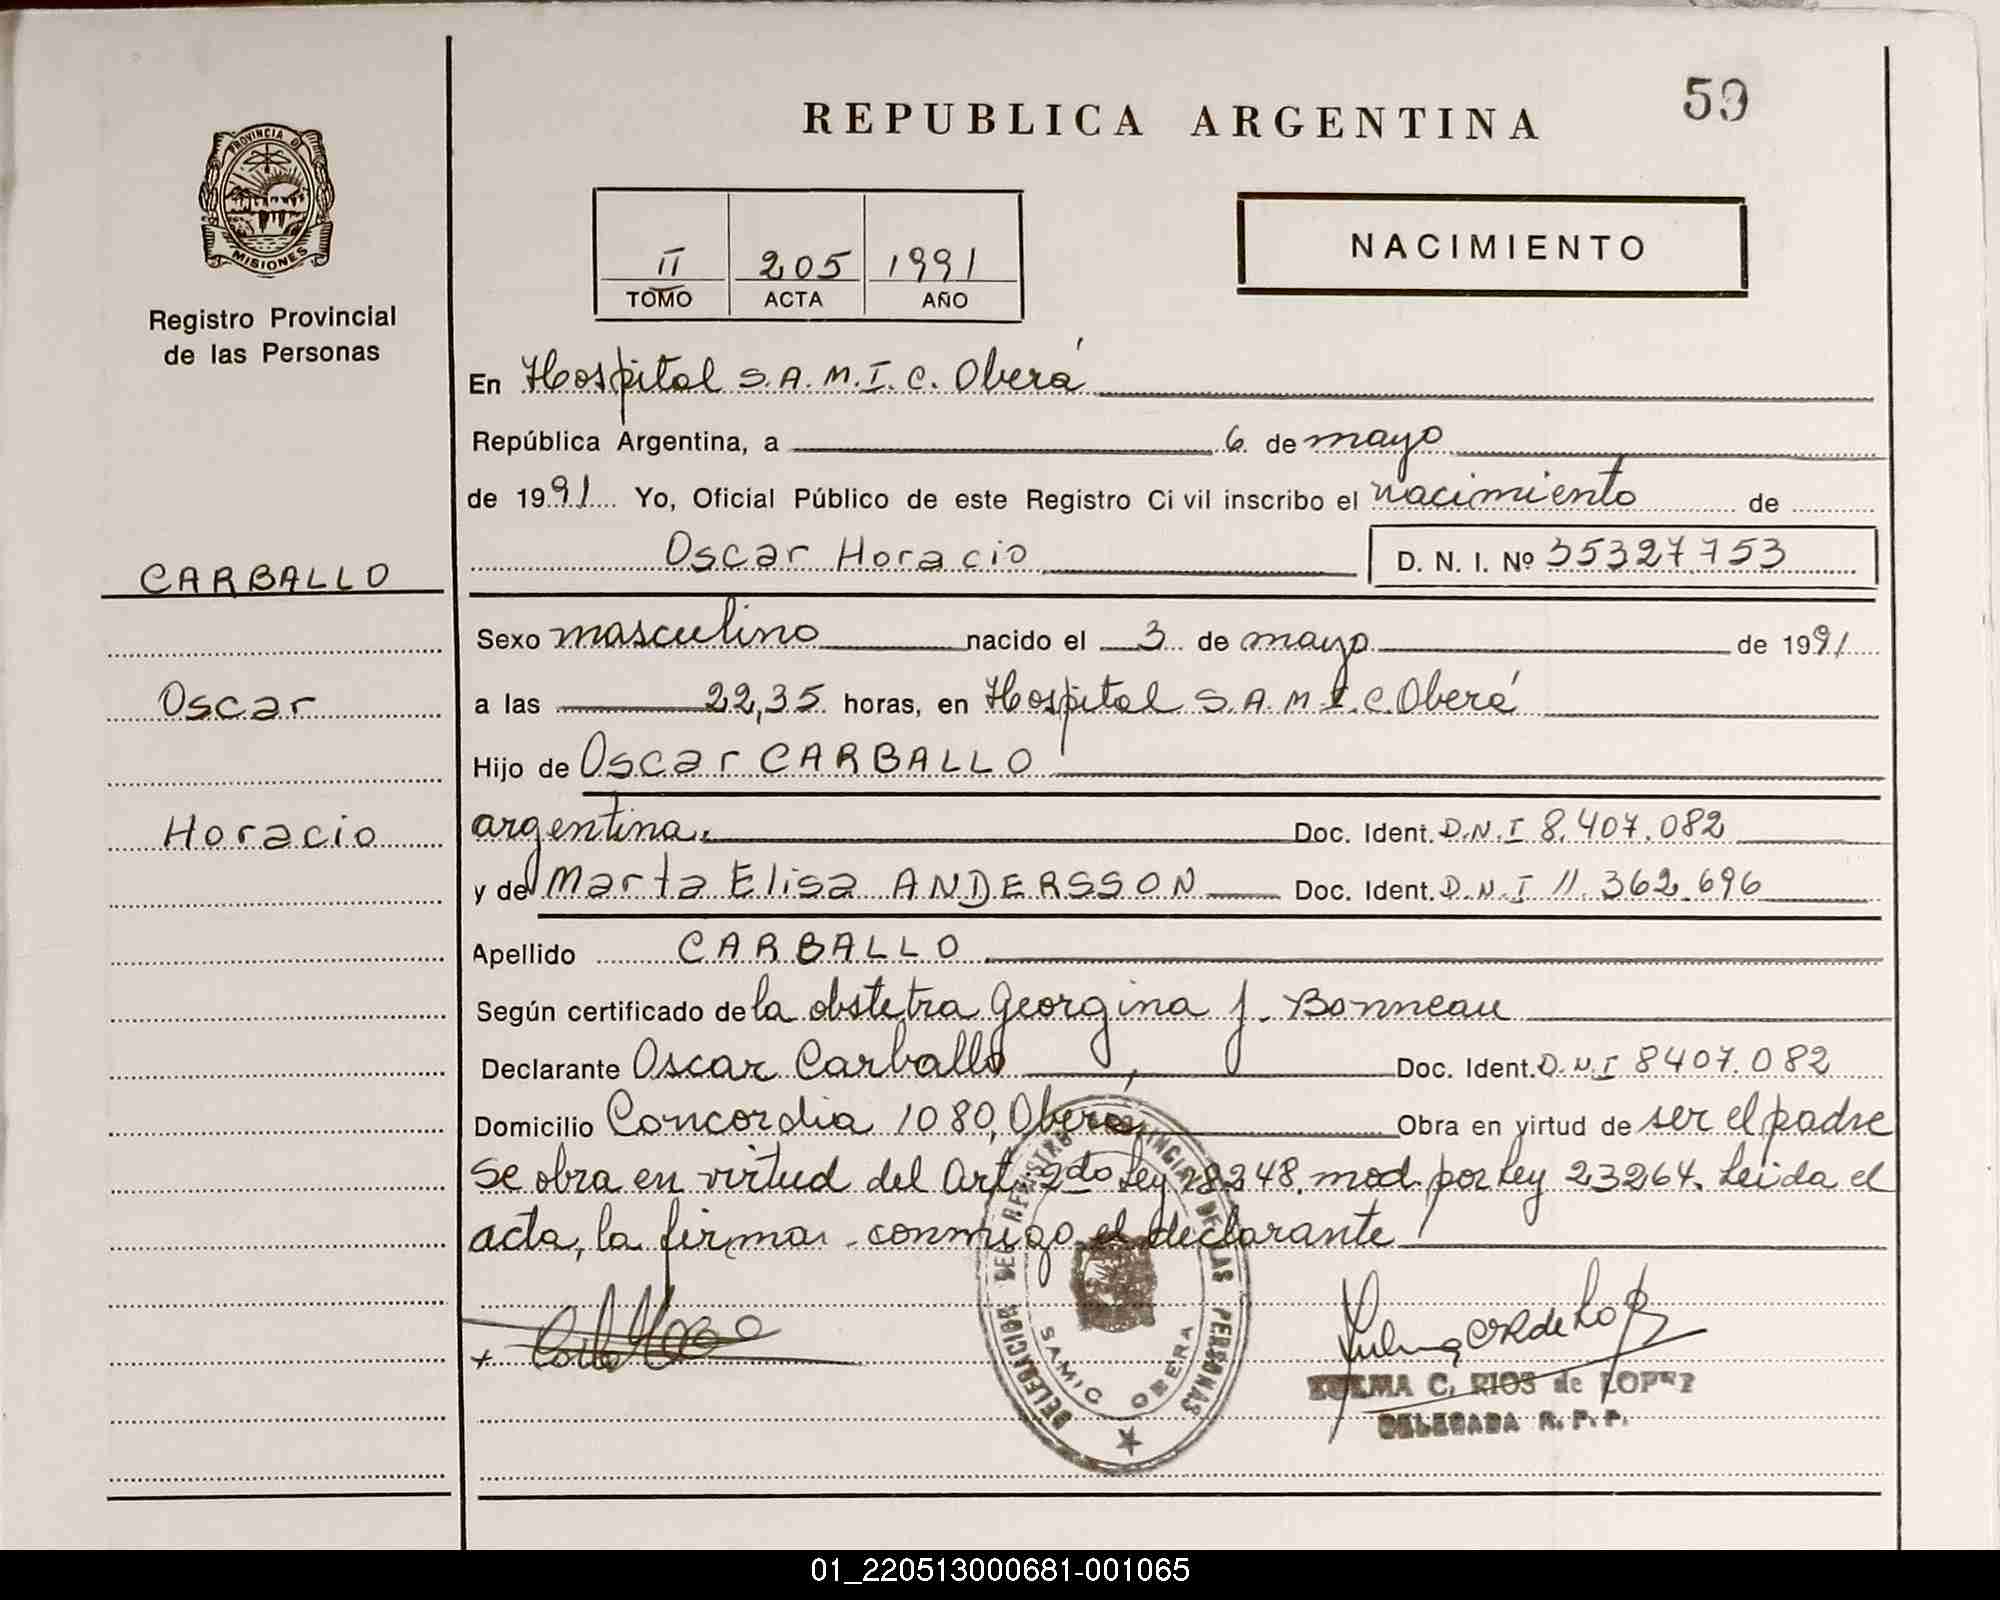 59
REPUBLICA ARGENTINA
PROVINCIA DE
MISIONES
Registro Provincial
de las Personas
NACIMIENTO
II 205 1991
TOMO ACTA AÑO
En Hospital S.A.M.I.C. Oberá
República Argentina, a 6 de mayo
de 1991 Yo, Oficial Público de este Registro Civil inscribo el nacimiento de
Oscar Horacio D. N. I. Nº 35327753
CARBALLO
Oscar
Horacio
Sexo masculino nacido el 3 de mayo de 1991
a las 22,35 horas, en Hospital S.A.M.I.C. Oberá
Hijo de Oscar CARBALLO
argentina. Doc. Ident. D.N.I 8.407.082
y de Marta Elisa ANDERSSON Doc. Ident. D.N.I 11.362.696
Apellido CARBALLO
Según certificado de la obstetra Georgina J. Bonneau
Declarante Oscar Carballo, Doc. Ident. D.N.I 8407.082
Domicilio Concordia 1080, Oberá Obra en virtud de ser el padre
Se obra en virtud del Art. 2do Ley 18248. mod. por Ley 23264. Leida el
acta, la firma conmigo el declarante
DELEGACION DEL REGISTRO PROVINCIAL DE LAS PERSONAS
SAMIC OBERA
ZULMA C. RIOS de LOPEZ
DELEGADA R. P. P.
01_220513000681-001065